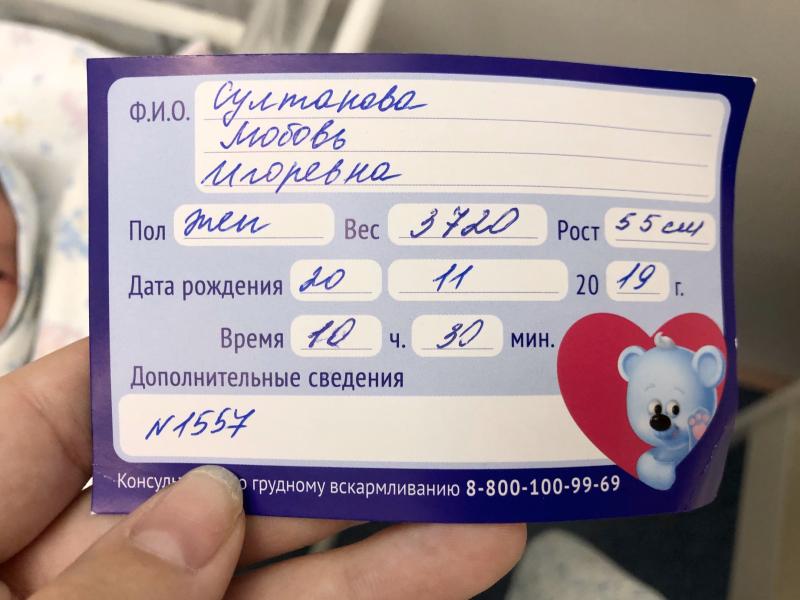 Ф.И.О. Султанова
Любовь
Игоревна
Пол жен Вес 3720 Рост 55 см
Дата рождения 20 11 2019 г.
Время 10 ч. 30 мин.
Дополнительные сведения
N1557
грудному вскармливанию 8-800-100-99-69